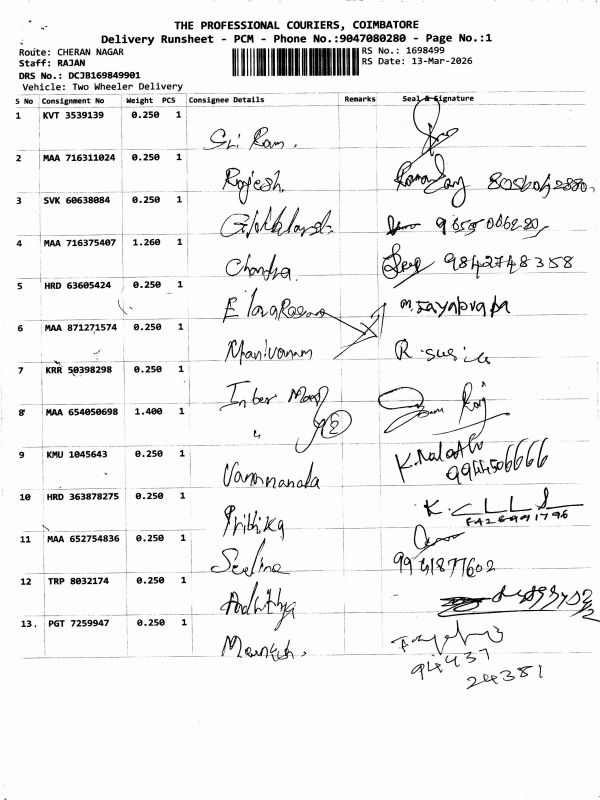 THE PROFESSIONAL COURIERS, COIMBATORE
Delivery Runsheet - PCM - Phone No.:9047080280 - Page No.:1
Route: CHERAN NAGAR
RS No.: 1698499
Staff: RAJAN
RS Date: 13-Mar-2026
DRS No.: DCJB169849901
Vehicle: Two Wheeler Delivery
S No Consignment No Weight PCS Consignee Details Remarks Seal & Signature
1 KVT 3539139 0.250 1
Sri Ram.
2 MAA 716311024 0.250 1
Rajesh
3 SVK 60638084 0.250 1
4 MAA 716375407 1.260 1
Chandra 9842748358
5 HRD 63605424 0.250 1
M. Jayabrapa
6 MAA 871271574 0.250 1
Manivanam R. susila
7 KRR 50398298 0.250 1
8 MAA 654050698 1.400 1
" 2
9 KMU 1045643 0.250 1
9944506666
10 HRD 363878275 0.250 1
Prithika
11 MAA 652754836 0.250 1
Selina 9941877602
12 TRP 8032174 0.250 1
Adhithya
13. PGT 7259947 0.250 1
94437
24381